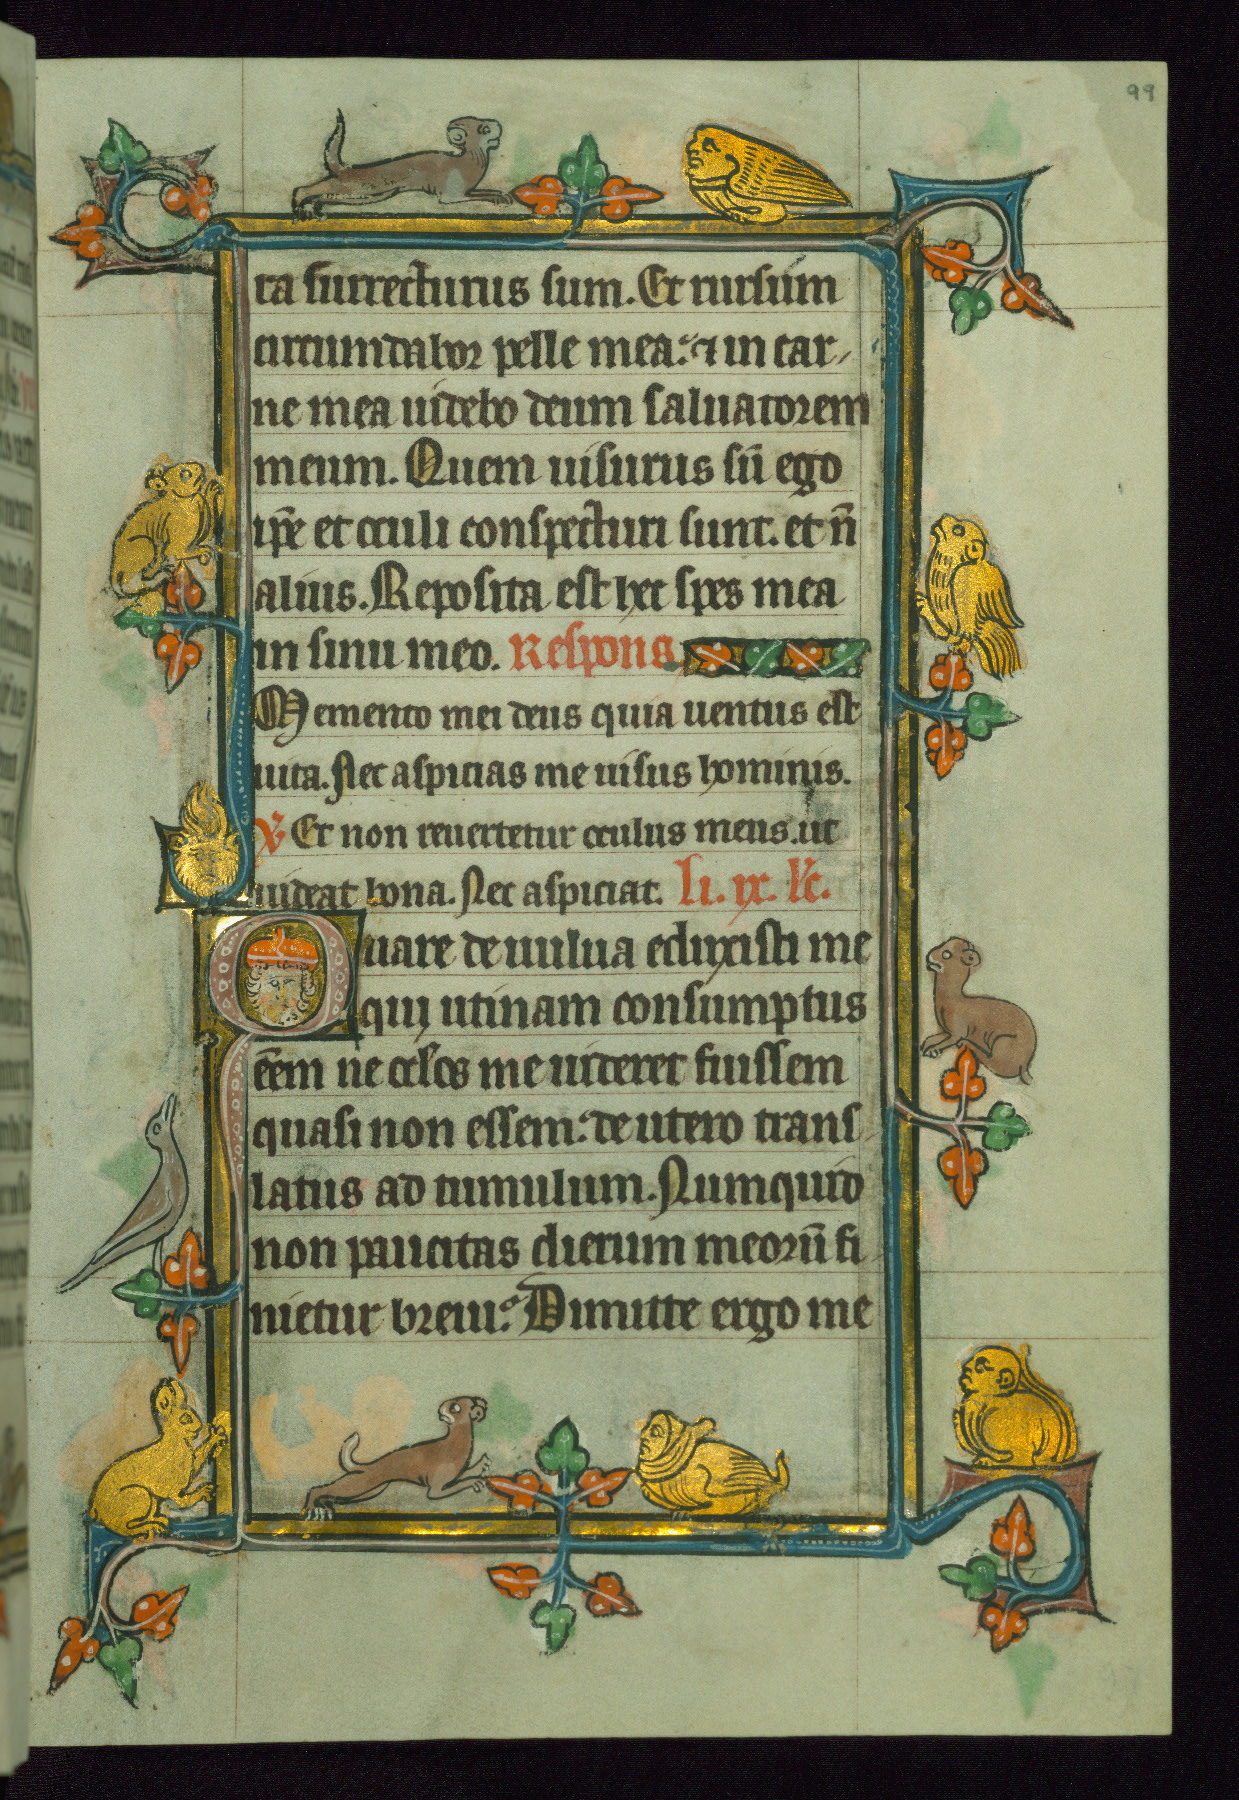 99
ra surrecturus sum. Et rursum
circumdabor pelle mea: ⁊ in car
ne mea uidebo deum saluatorem
meum. Quem uisurus sū ego
ip̄e et oculi conspecturi sunt. et n̄
alius. Reposita est hec spes mea
in sinu meo. Respons.
Memento mei deus quia uentus est
uita. Nec aspicias me uisus hominis.
℣ Et non reuertetur oculus meus. ut
uideat bona. Nec aspiciat. li. ix. lc̄.
Quare de uulua eduxisti me
qui utinam consumptus
eēm ne ocl̄os me uideret fuissem
quasi non essem: de utero trans
latus ad tumulum. Numquid
non paucitas dierum meorū fi
nietur breui: Dimitte ergo me